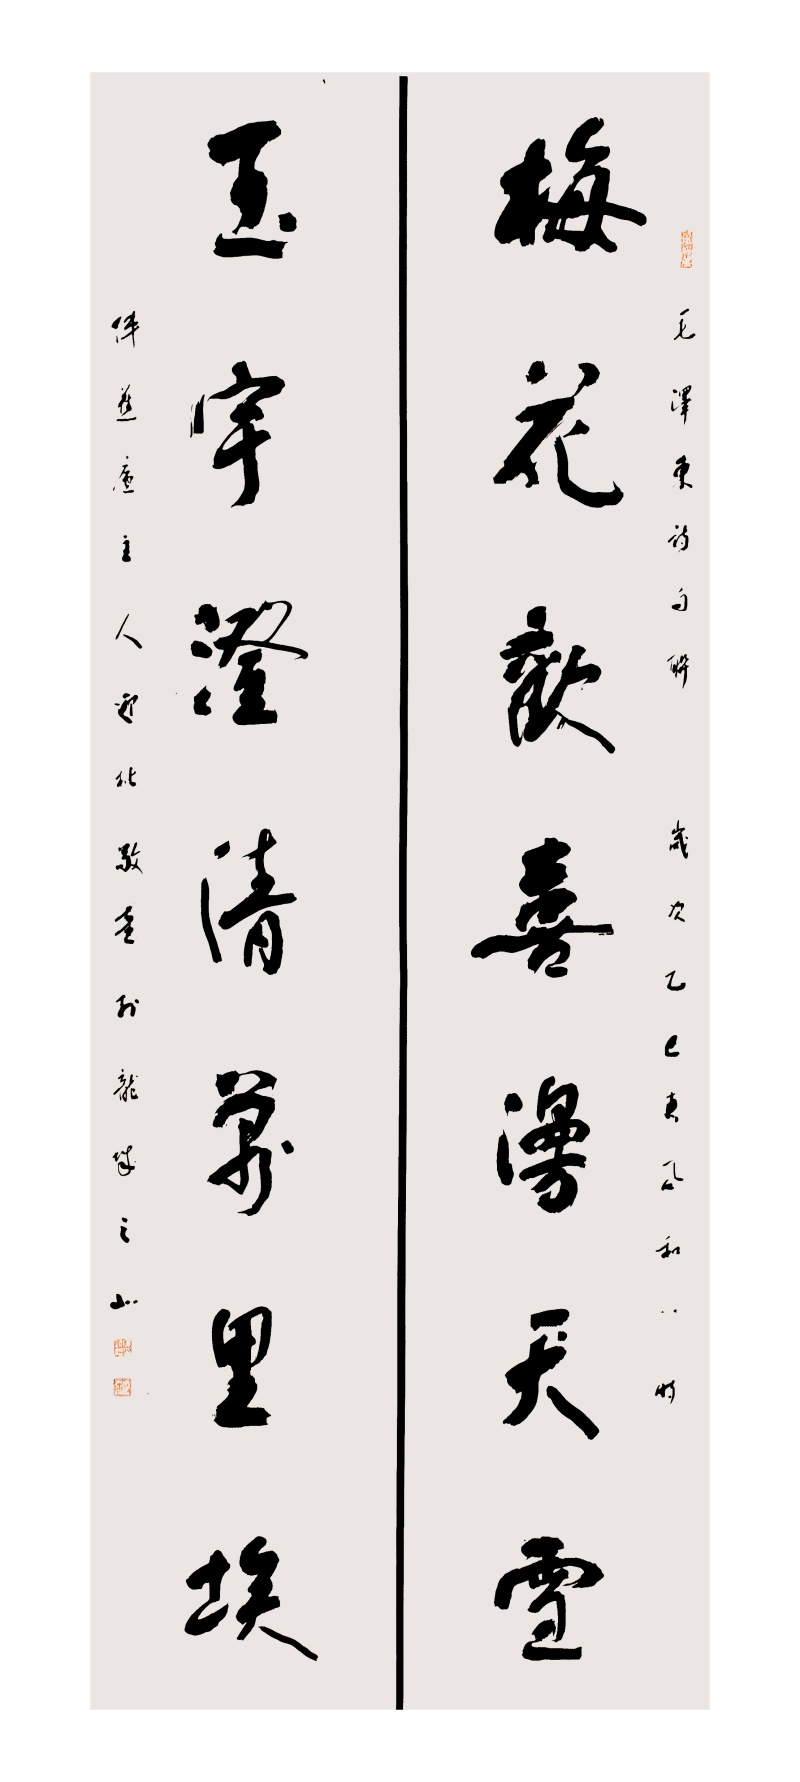 毛澤東詩句聯 歲次乙巳春風和八時
梅花歡喜漫天雪
玉宇澄清萬里埃
伴蕉廬主人 敬書於龍城之